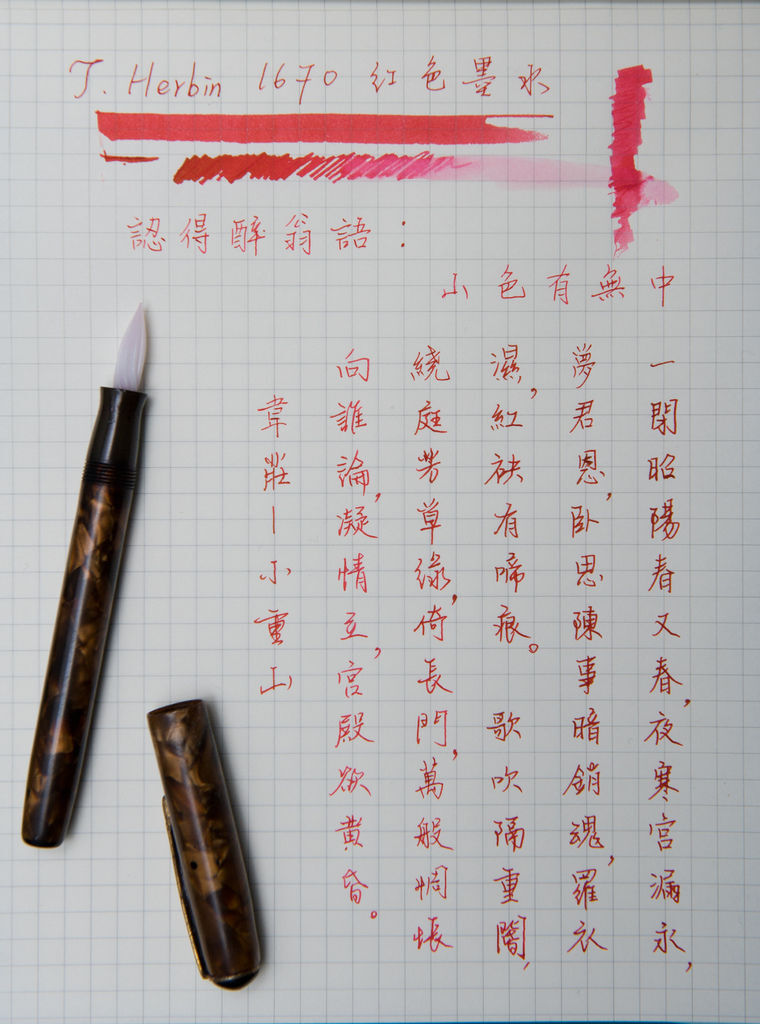 J. Herbin 1670 红色墨水
認得醉翁語：
山色有無中
一閉昭陽春又春，夜寒宮漏永，
夢君恩，卧思陳事暗銷魂，羅衣
濕，紅袂有啼痕。 歌吹隔重閽，
繞庭芳草綠，倚長門，萬般惆悵
向誰論，凝情立，宮殿欲黃昏。
韋莊—小重山